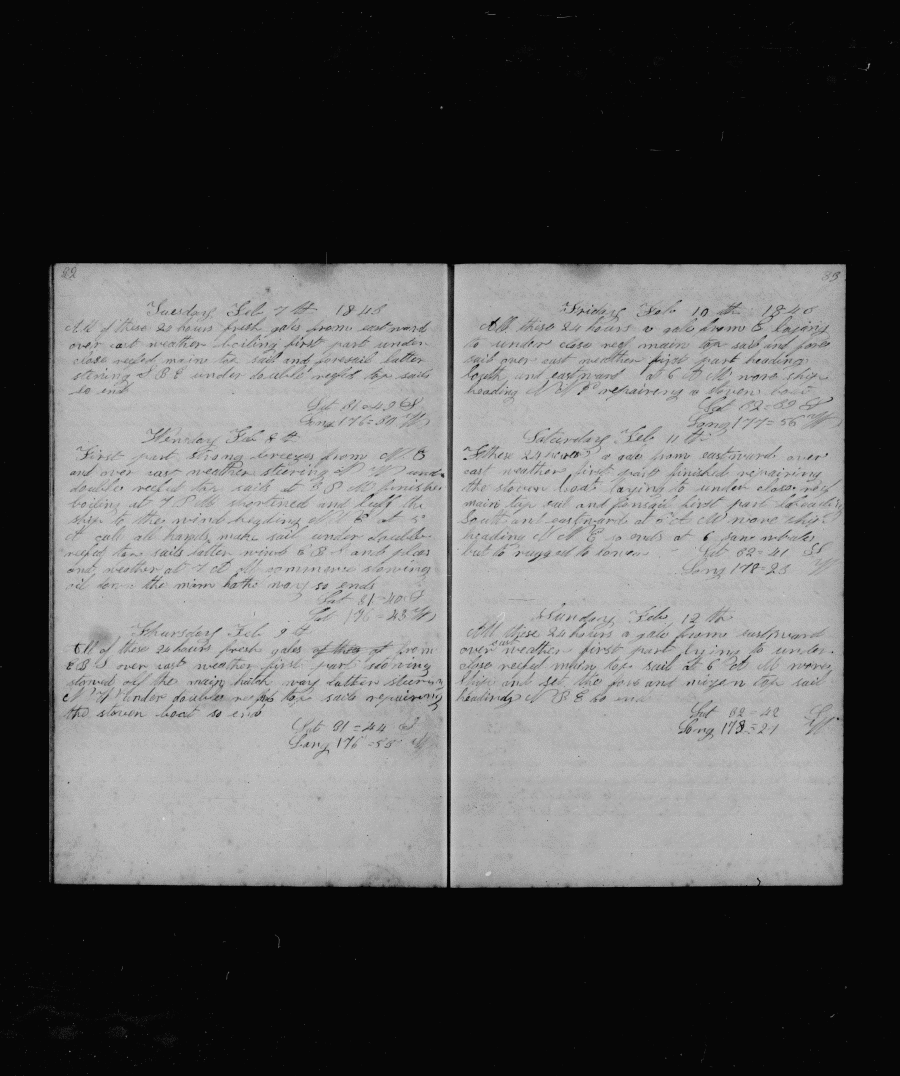 82
Tuesday Feb 7 th 1848
All of these 24 hours fresh gales from eastward
over cast weather boiling first part under
close reefed main top sail and foresail latter
stering S B E under double reefd top sails
so end
Lat 31 = 49 S
Long 176 = 50 W
Wensday Feb 8 th
First part strong breezes from N E
and over cast weather steering N W under
double reefed top sails at 3 P M finished
boiling at 7 P M shortened and luffd the
ship to the wind heading at 5
A call all hands make sail under double
reefd top sails latter wind E B S and pleas
and weather at 7 A M commence stowing
oil down the main hatc way so ends
Lat 31 = 40 S
Lat 176 = 43 W
Thursday Feb 9 th
All of these 24 hours fresh gales of from
E B S over cast weather first part stowing
stowed off the main hatch way latter steering
N W under double reefd top sails repairing
the stoven boat so end
Lat 31 = 44 S
Long 176 = 55 W
83
Friday Feb 10 th 1848
All these 24 hours a gale from E laying
to under close reef main top sail and fore
sail over cast weather first part heading
South and eastward at 6 A M wore ship
heading N N E repairing a stoven boat
Lat 32 = 39 S
Long 177 = 56 W
Saturday Feb 11 th
these 24 hours a gale from eastward over
cast weather first part finished repairing
the stoven boat laying to under close reef
main top sail and foresail first part heading
South and eastward at 6 A M wore ship
heading N N E so ends at 6 saw whales
but to rugged to lower Lat 32 = 41 S
Long 178 = 23 W
Sunday Feb 12 th
All these 24 hours a gale frome eastward
over cast weather first part lying to under
close reefed main top sail at 6 A M wore
ship and set the fore and mizen top sail
heading N B E so end
Lat 32 = 42 S
Long 178 = 21 W